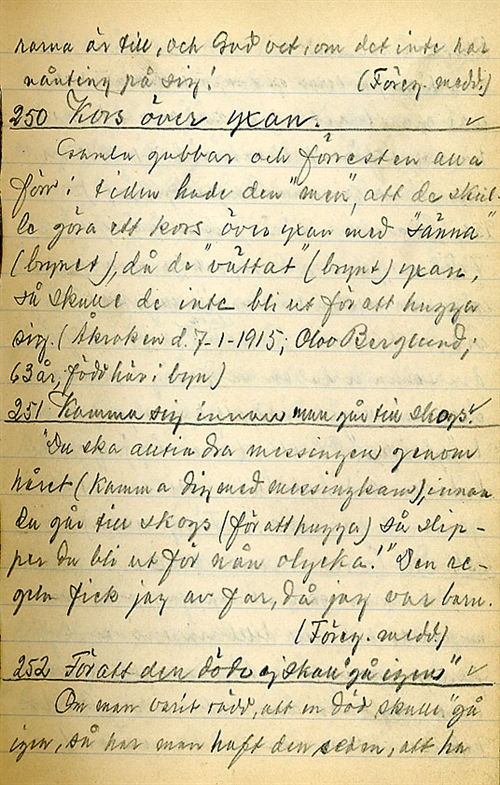 rarna är till, och Gud vet, om det inte har
nånting på sig!" (Föreg. medd.)
250 Kors över yxan. ✓
Gamla gubbar och förresten alla
förr i tiden hade den "men", att de skul-
le göra ett kors över yxan med "sänna"
(brynet), då de "vättat" (brynt) yxan,
så skulle de inte bli ut för att hugga
sig. (Åkroken d. 7-1-1915; Olov Berglund;
63 år, född här i byn)
251 Kamma sig innan man går till skogs. ✓
"Du ska alltid dra messingen genom
håret (kamma dig med messingkam), innan
du går till skogs (för att hugga) så slip-
per du bli ut för nån olycka!" Den re-
geln fick jag av far, då jag var barn.
(Föreg. medd.)
252 För att den döde ej skall "gå igen" ✓
Om man varit rädd, att en död skulle "gå
igen, så har man haft den seden, att ha